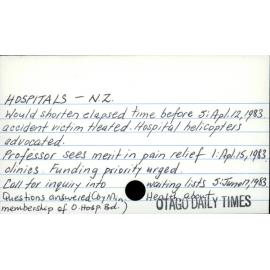 HOSPITALS - N.Z.
Would shorten elapsed time before 5: Apl. 12, 1983
accident victim treated. Hospital helicopters
advocated.
Professor sees merit in pain relief 1: Apl. 15, 1983
clinics. Funding priority urged.
Call for inquiry into waiting lists 5: June 17, 1983
Questions answered (by Min. Health about
membership of O. Hosp. Bd.)
OTAGO DAILY TIMES